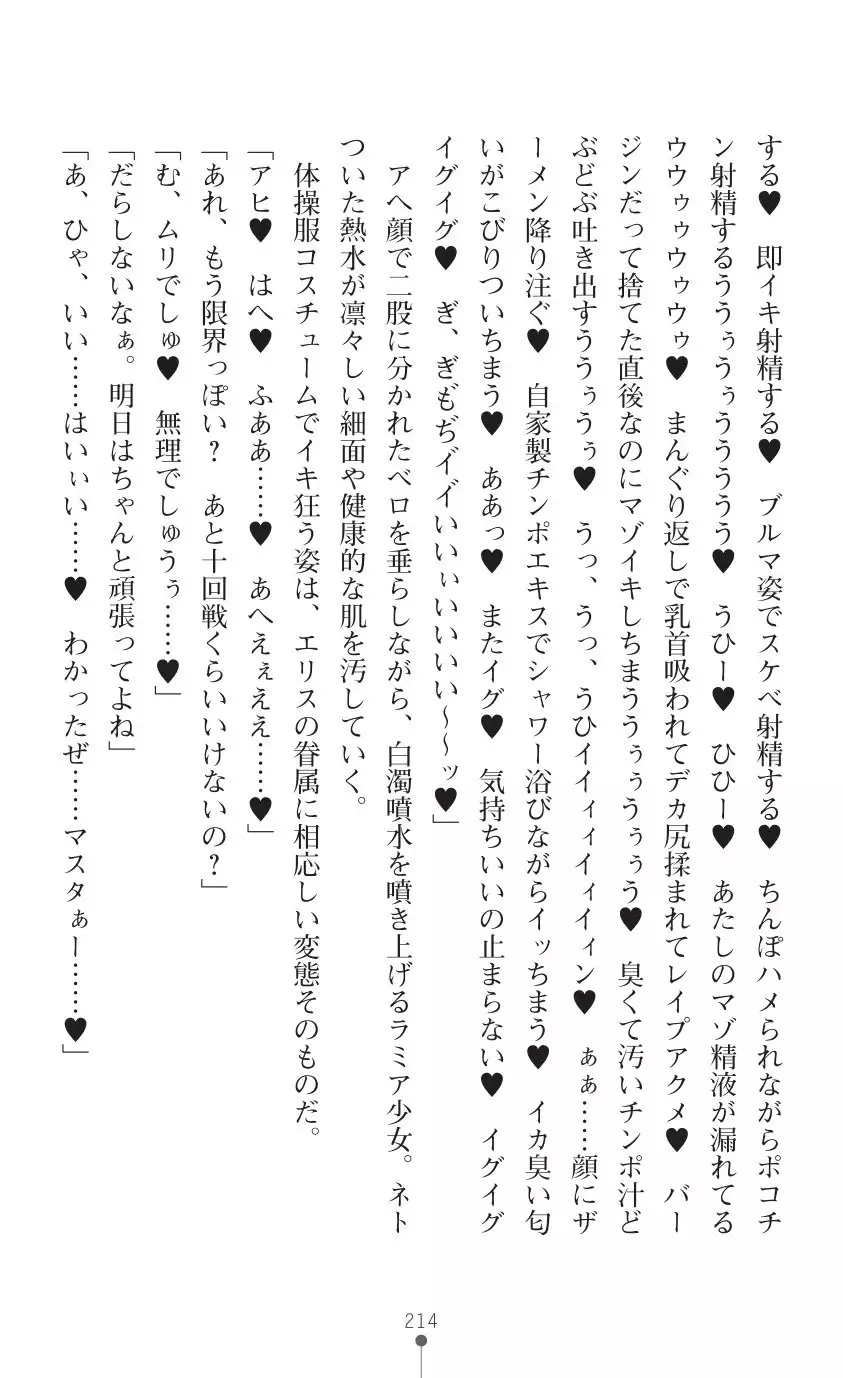 する♥　即イキ射精する♥　ブルマ姿でスケベ射精する♥　ちんぽハメられながらポコチ
ン射精するううぅうぅうううう♥　うひー♥　ひひー♥　あたしのマゾ精液が漏れてる
ウウゥゥウゥウゥ♥　まんぐり返しで乳首吸われてデカ尻揉まれてレイプアクメ♥　バー
ジンだって捨てた直後なのにマゾイキしちまううぅぅうぅぅう♥　臭くて汚いチンポ汁ど
ぶどぶ吐き出すううぅうぅ♥　うっ、うっ、うひイイィィイィイィン♥　ぁぁ……顔にザ
ーメン降り注ぐ♥　自家製チンポエキスでシャワー浴びながらイッちまう♥　イカ臭い匂
いがこびりついちまう♥　ああっ♥　またイグ♥　気持ちいいの止まらない♥　イグイグ
イグイグ♥　ぎ、ぎも゛ぢイ゛イ゛いいぃいいいい～～ッ♥」
　アヘ顔で二股に分かれたベロを垂らしながら、白濁噴水を噴き上げるラミア少女。ネト
ついた熱水が凛々しい細面や健康的な肌を汚していく。
　体操服コスチュームでイキ狂う姿は、エリスの眷属に相応しい変態そのものだ。
「アヒ♥　はへ♥　ふああ……♥　あへえぇええ……♥」
「あれ、もう限界っぽい？　あと十回戦くらいいけないの？」
「む、ムリでしゅ♥　無理でしゅうぅ……♥」
「だらしないなぁ。明日はちゃんと頑張ってよね」
「あ、ひゃ、いい……はいぃい……♥　わかったぜ……マスタぁー……♥」
214